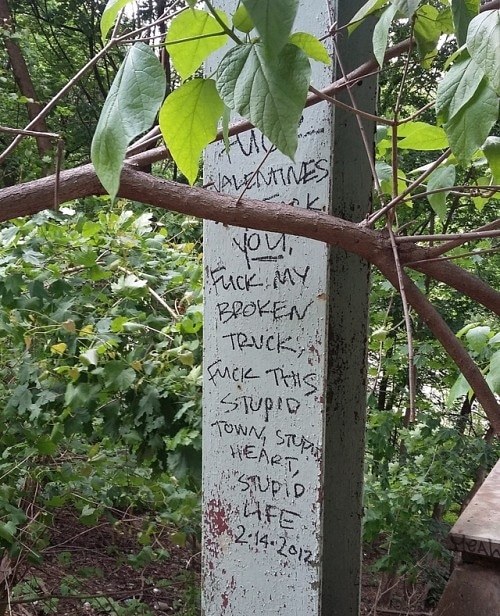 VALENTINES
YOU,
FUCK MY
BROKEN
TRUCK,
FUCK THIS
STUPID
TOWN, STUPID
HEART,
STUPID
LIFE
2-14-2012